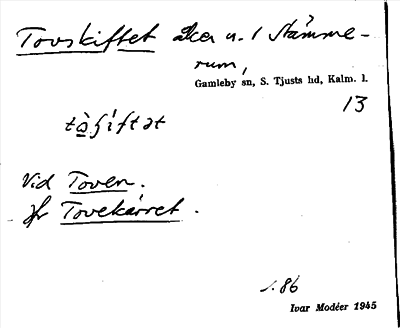 Tovskiftet åker u. 1 Stämme-
rum,
Gamleby sn, S. Tjusts hd, Kalm. l.
13
Vid Toven.
Jfr Tovekärret.
s. 86
Ivar Modéer 1945